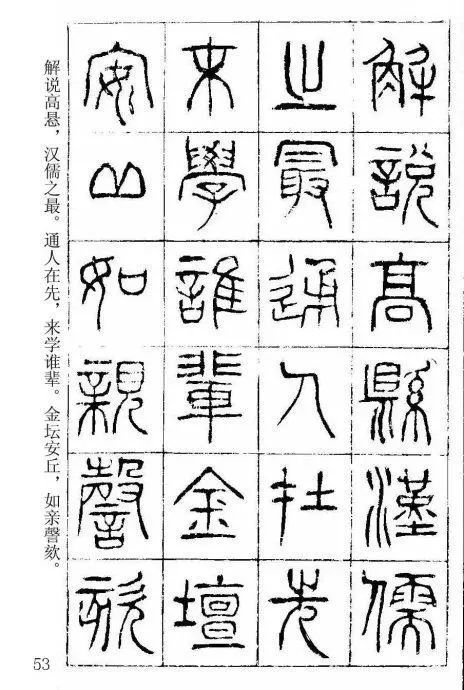 解說高縣漢儒
之最通人在先
來學誰輩金壇
安丘如親謦欬
解说高悬，汉儒之最。通人在先，来学谁辈。金坛安丘，如亲謦欬。
53